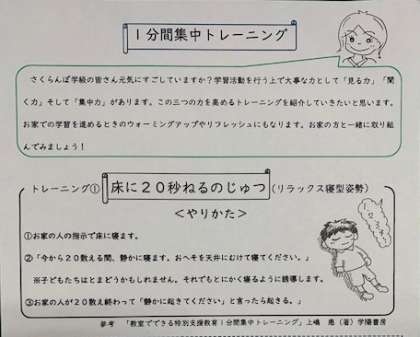 1分間集中トレーニング
さくらんぼ学級の皆さん元気にすごしていますか?学習活動を行う上で大事な力として「見る力」「聞
く力」そして「集中力」があります。この三つの力を高めるトレーニングを紹介していきたいと思います。
お家での学習を進めるときのウォーミングアップやリフレッシュにもなります。お家の方と一緒に取り組
んでみましょう!
トレーニング① 床に20秒ねるのじゅつ(リラックス寝型姿勢)
<やりかた>
①お家の人の指示で床に寝ます。
②「今から20数える間、静かに寝ます。おへそを天井にむけて寝てください。」
※子どもたちはとまどうかもしれません。それでもとにかく寝るように誘導します。
③お家の人が20数え終わって「静かに起きてください」と言ったら起きる。」
参考 「教室でできる特別支援教育1分間集中トレーニング」上嶋 惠(著)学陽書房